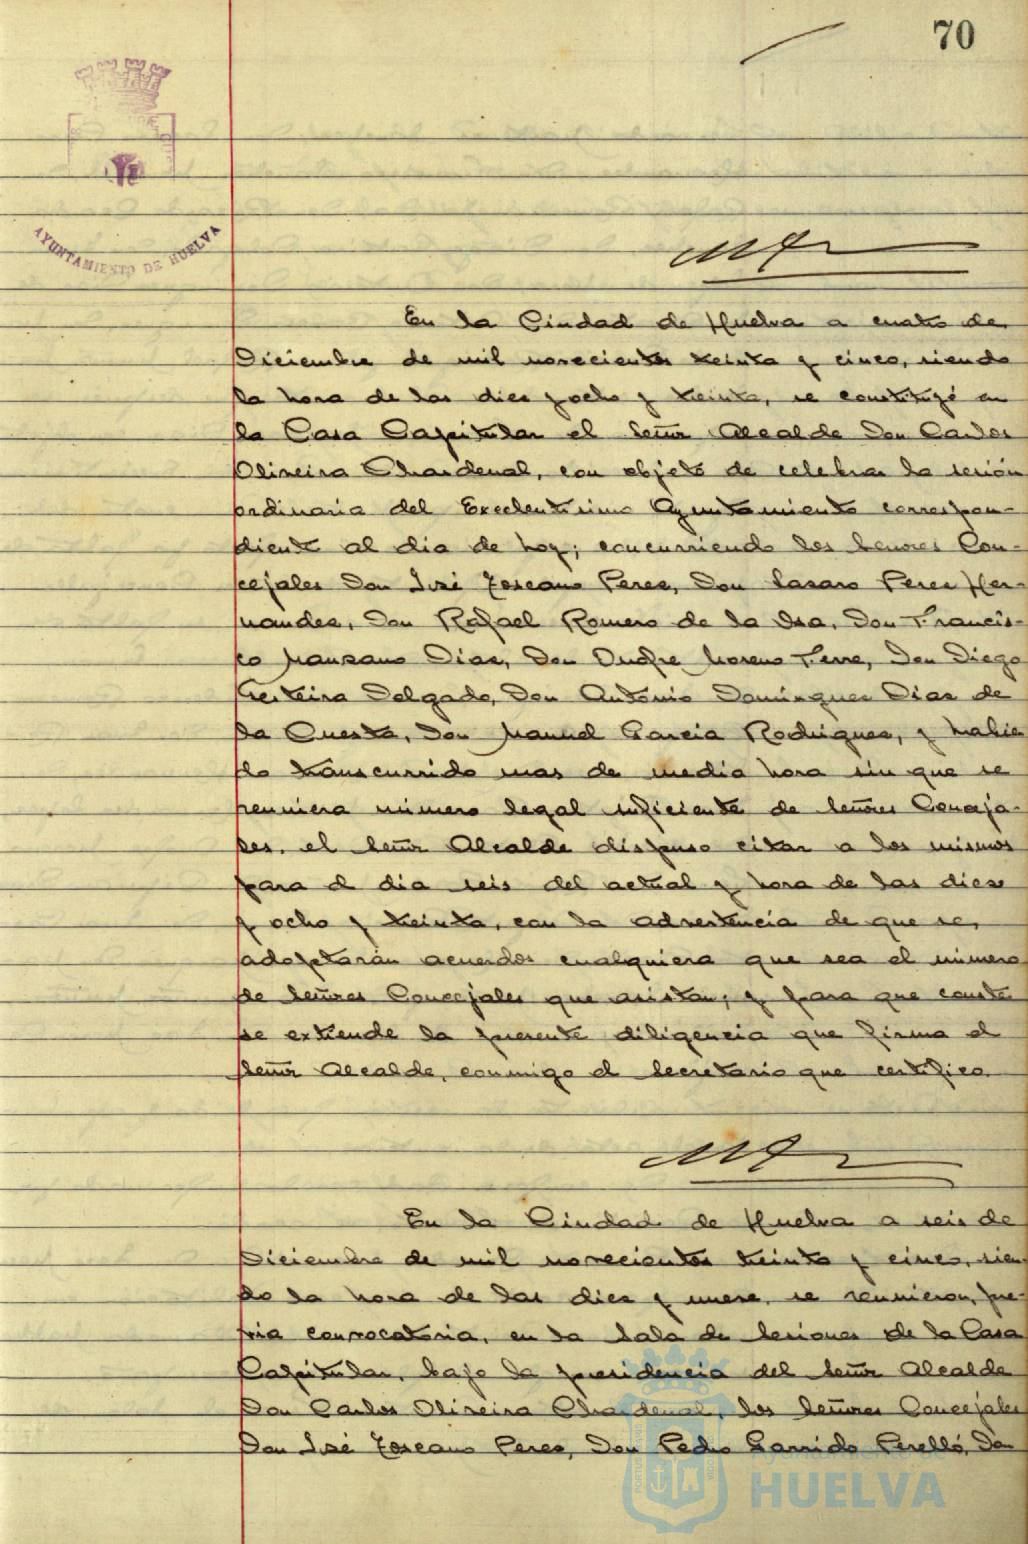 70
AYUNTAMIENTO DE HUELVA
En la Ciudad de Huelva a cuatro de
Diciembre de mil novecientos treinta y cinco, siendo
la hora de las diez y ocho y treinta, se constituyó en
la Casa Capitular el Señor Alcalde Don Carlos
Oliveira Chardenal, con objeto de celebrar la sesión
ordinaria del Excelentisimo Ayuntamiento correspon-
diente al dia de hoy; concurriendo los Señores Con-
cejales Don José Toscano Perez, Don Lazaro Perez Her-
nandez, Don Rafael Romero de la Osa, Don Francis-
co Manzano Diaz, Don Onofre Moreno Terre, Don Diego
Delgado, Don Antonio Dominguez Diaz de
la Cuesta, Don Manuel Garcia Rodriguez, y habien
do transcurrido mas de media hora sin que se
reuniera número legal suficiente de Señores Conceja-
les, el Señor Alcalde dispuso citar a los mismos
para el dia seis del actual y hora de las diez
y ocho y treinta, con la advertencia de que se
adoptarán acuerdos cualquiera que sea el número
de Señores Concejales que asistan; y para que conste
se extiende la presente diligencia que firma el
Señor Alcalde, conmigo el Secretario que certifico.
En la Ciudad de Huelva a seis de
Diciembre de mil novecientos treinta y cinco, sien-
do la hora de las diez y nueve, se reunieron, pre-
via convocatoria, en la Sala de Sesiones de la Casa
Capitular, bajo la presidencia del Señor Alcalde
Don Carlos Oliveira Chardenal, los Señores Concejales
Don José Toscano Perez, Don Pedro Garrido Perelló, Don
Ayuntamiento de
HUELVA